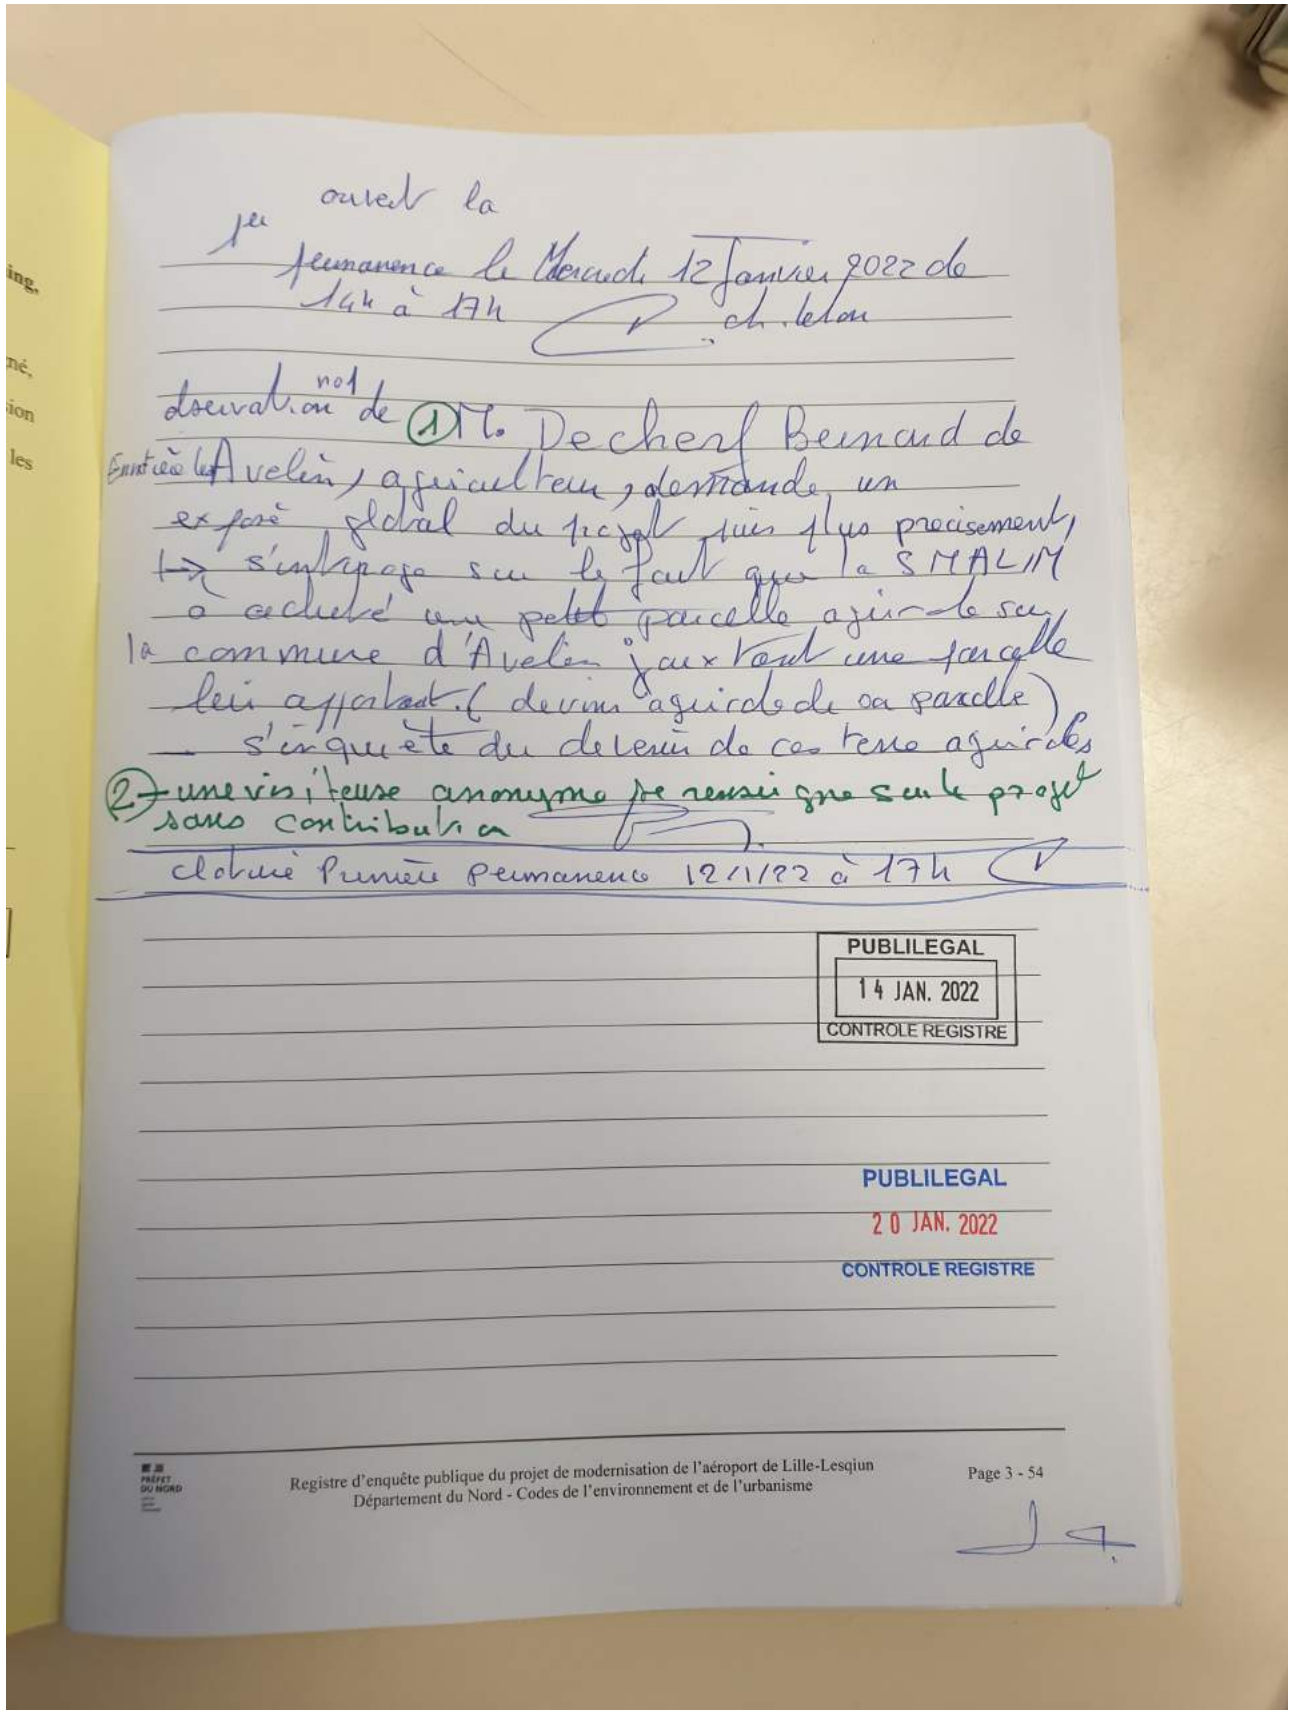 ing,
né,
sion
les
ouvert la
1ere
permanence le Mercredi 12 Janvier 2022 de
14h à 17h ch. lelou
observation no1 de ① M. Decherf Bernard de
Avelin, agriculteur, demande un
exposé global du projet puis plus precisement,
↳ s'interroge sur le fait que la SMALIM
a acheté une petite parcelle agricole sur
la commune d'Avelin jouxtant une parcelle
leur appartenant. ( devenir agricole de sa parcelle)
— s'inquète du devenir de ces terre agricoles
② - une visiteuse anonyme se renseigne sur le projet
sans contribution
cloture Première permanence 12/1/22 à 17h
PUBLILEGAL
14 JAN. 2022
CONTROLE REGISTRE
PUBLILEGAL
20 JAN. 2022
CONTROLE REGISTRE
PRÉFET
DU NORD
Registre d'enquête publique du projet de modernisation de l'aéroport de Lille-Lesqiun
Département du Nord - Codes de l'environnement et de l'urbanisme
Page 3 - 54